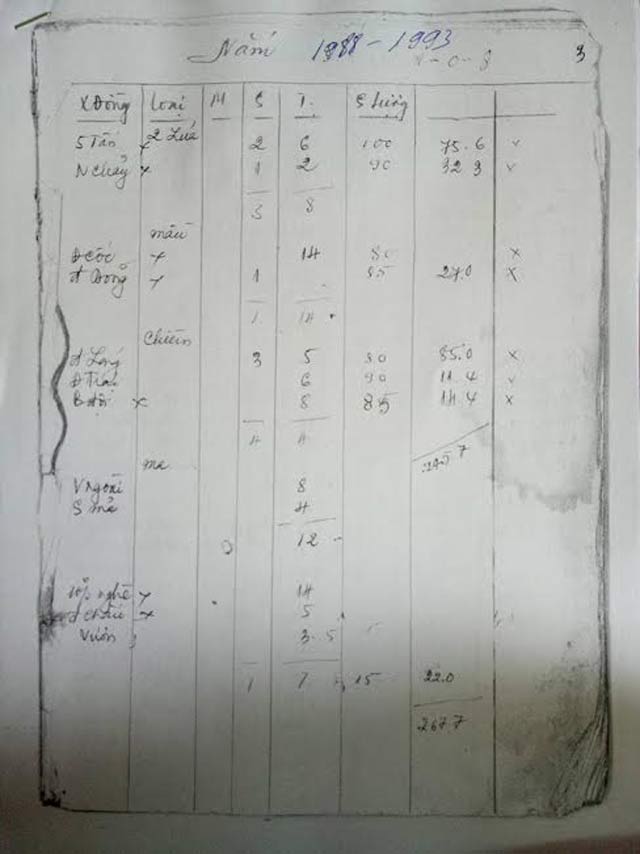 Năm 1988 - 1993
3
X Đồng Loại M S T. S lượng
5 Tấn x 2 Lúa 2 6 100 75.6 v
N chảy x 1 2 90 32 3 v
3 8
màu
Đ cốc x 14 80 x
đ Đồng x 1 85 27.0 x
1 14
Chiêm
3 5 80 85.0 x
6 90 11.4 v
x 8 85 14.4 x
4 4
mạ
V ngoài 8
S mả 4
12
x 14
x 5
Vườn 3.5
1 7 15 22.0
267.7